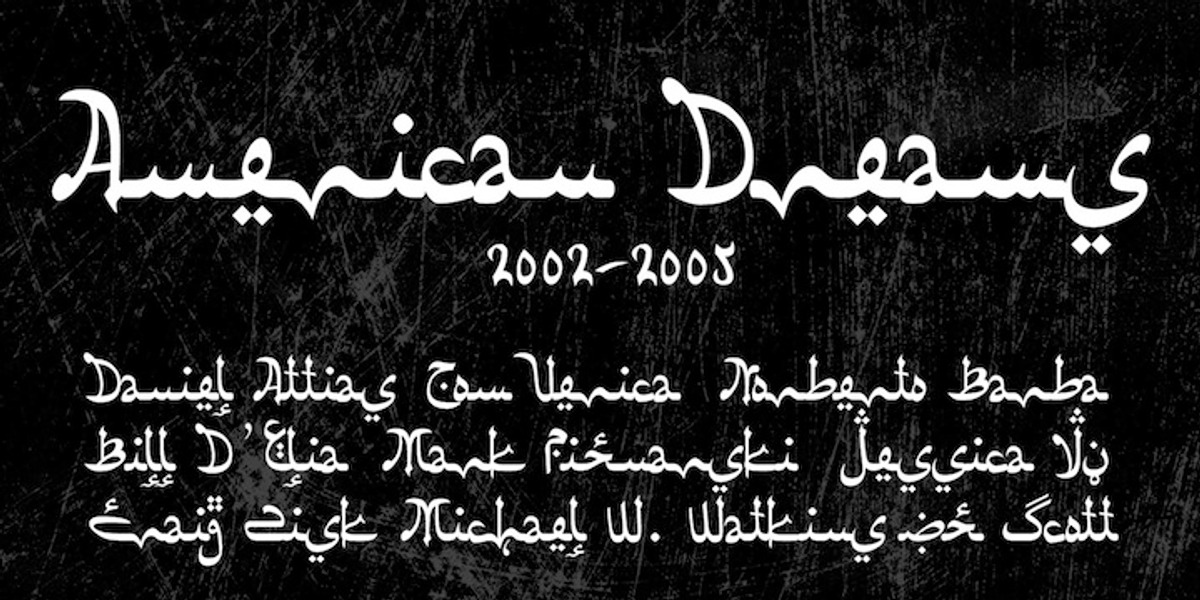 American Dreams
2002-2005
Daniel Attias Tom Verica Norberto Barba
Bill D'Elia Mark Piznarski Jessica
Craig Zisk Michael W. Watkins Scott